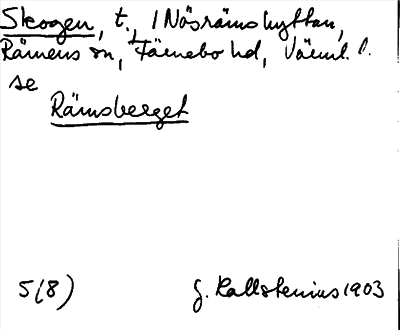 Skogen, t., i Näsrämshyttan,
Rämens sn, Färnebo hd, Värml. l.
se
Rämsberget
5(8) G. Kallstenius 1903